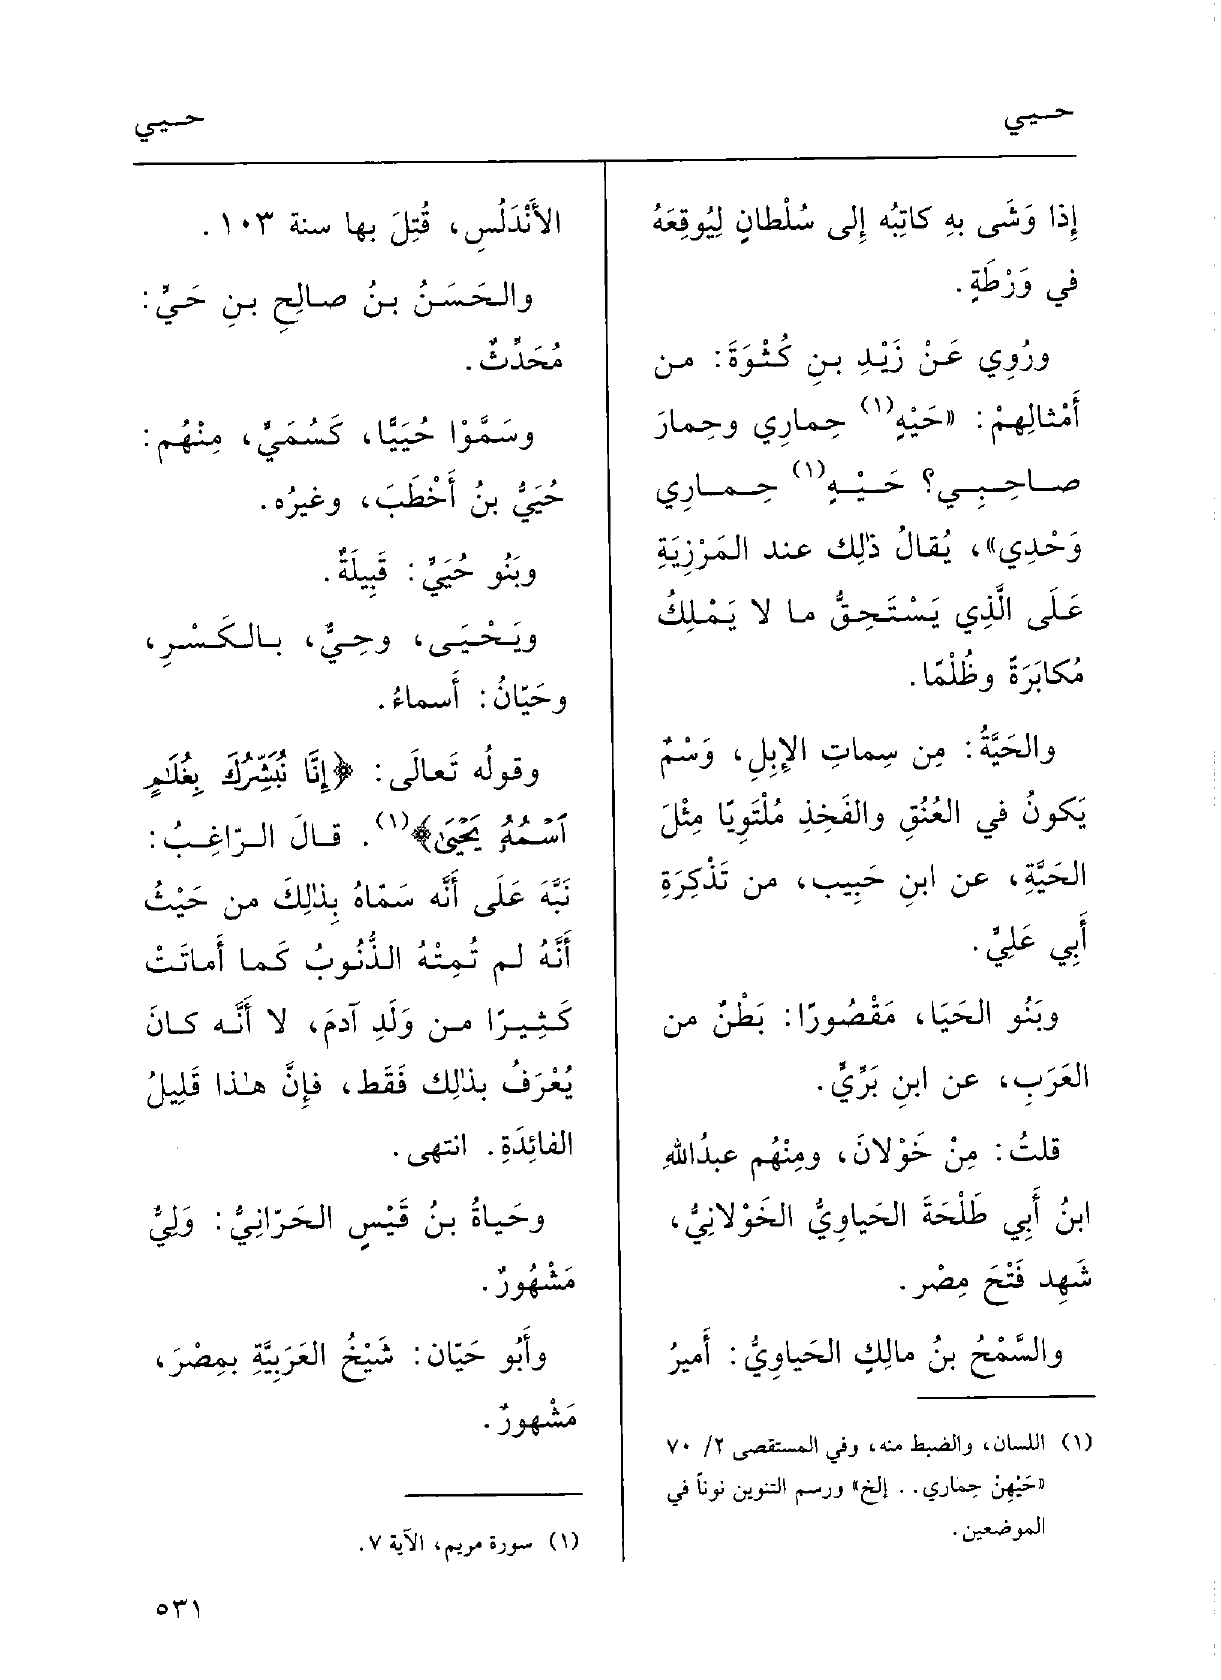 حـيي
حـيي
إِذا وَشَى بِهِ كاتِبُه إِلى سُلْطانٍ لِيُوقِعَهُ
في وَرْطَةٍ.
ورُوِي عَنْ زَيْدِ بنِ كُثْوَةَ: من
أَمْثالِهِمْ: «حَيْهٍ(١) حِمارِي وحِمارَ
صاحِبِي؟ حَيْهٍ(١) حِمارِي
وَحْدِي»، يُقالُ ذٰلِك عند المَرْزِيَةِ
عَلَى الَّذِي يَسْتَحِقُّ ما لا يَمْلِكُ
مُكابَرَةً وظُلْمًا.
والحَيَّةُ: مِن سِماتِ الإِبِلِ، وَسْمٌ
يَكونُ في العُنُقِ والفَخِذِ مُلْتَوِيًا مِثْلَ
الحَيَّةِ، عن ابنِ حَبِيب، من تَذْكِرَةِ
أَبِي عَلِيٍّ.
وبَنُو الحَيَا، مَقْصُورًا: بَطْنٌ من
العَرَبِ، عن ابنِ بَرِّيٍّ.
قلتُ: مِنْ خَوْلانَ، ومِنْهُم عبدُاللهِ
ابنُ أَبِي طَلْحَةَ الحَياوِيُّ الخَوْلانِيُّ،
شَهِد فَتْحَ مِصْر.
والسَّمْحُ بنُ مالِكٍ الحَياوِيُّ: أَمِيرُ
(١) اللسان، والضبط منه، وفي المستقصى ٢/ ٧٠
«حَيْهِنْ حِماري.. إلخ» ورسم التنوين نوناً في
الموضعين.
الأَنْدَلُسِ، قُتِلَ بها سنة ١٠٣.
والحَسَنُ بنُ صالِحِ بنِ حَيٍّ:
مُحَدِّثٌ.
وسَمَّوْا حُيَيًّا، كَسُمَيٍّ، مِنْهُم:
حُيَيُّ بنُ أَخْطَبَ، وغيرُه.
وبَنُو حُيَيٍّ: قَبِيلَةٌ.
ويَحْيَى، وحِيٌّ، بالكَسْرِ،
وحَيّانُ: أَسماءٌ.
وقولُه تَعالَى: ﴿إِنَّا نُبَشِّرُكَ بِغُلَٰمٍ
ٱسْمُهُۥ يَحْيَىٰ﴾(١). قالَ الرّاغِبُ:
نَبَّهَ عَلَى أَنَّه سَمّاهُ بِذٰلِكَ من حَيْثُ
أَنَّهُ لم تُمِتْهُ الذُّنُوبُ كَما أَماتَتْ
كَثِيرًا من وَلَدِ آدمَ، لا أَنَّه كانَ
يُعْرَفُ بذٰلِك فَقَط، فإِنَّ هٰذا قَلِيلُ
الفائِدَةِ. انتهى.
وحَياةُ بنُ قَيْسٍ الحَرّانِيُّ: وَلِيٌّ
مَشْهُورٌ.
وأَبُو حَيّان: شَيْخُ العَرَبِيَّةِ بمِصْرَ،
مَشْهورٌ.
(١) سورة مريم، الآية ٧.
٥٣١